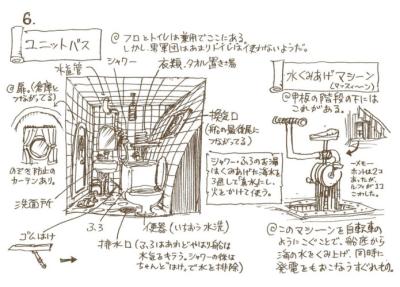 6.
ユニットバス
@フロとトイレは兼用でここにある。
しかし、男軍団はあまりトイレは使わないようだ。
水道管
シャワー
衣類、タオル置き場
@扉。(倉庫と
つながってる)
のぞき防止の
カーテンあり。
洗面所
ゴムはけ
ふろ
排水口
便器(いちおう水洗)
(ふろはあれどやはり船は
水気をキラう。シャワーの後は
ちゃんと"はけ"で水を排除)
(船の最後尾に
つながってる)
シャワー・ふろのお湯
はくみあげた海水を
3過して真水にし、
火とかけて使う。
水くみあげマシーン
@甲板の階段の下には
これがある。
ーメモー
ホントは2コ
あったが、
ルフィが1コ
こわした。
@このマシーンを自転車の
ようにこぐことで、船底から
海の水をくみ上げ、同時に
発電をもおこなうすぐれもの。